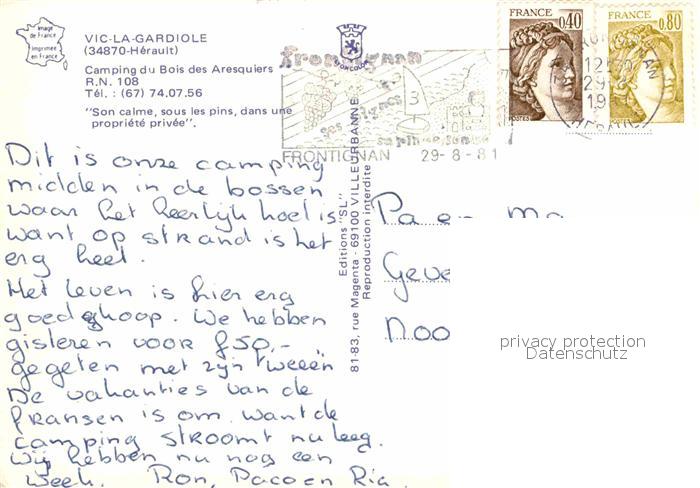 Image
de France
Imprimée
en France
VIC-LA-GARDIOLE
(34870-Hérault)
Camping du Bois des Aresquiers
R.N. 108
Tél. : (67) 74.07.56
"Son calme, sous les pins, dans une
propriété privée".
Dit is onze camping
midden in de bossen
waar het heerlijk koel is
want op strand is het
erg heet.
Het leven is hier erg
goedkoop. We hebben
gisteren voor f50,-
gegeten met z'n tweeën
De vakanties van de
fransen is om want de
camping stroomt nu leeg.
Wij hebben nu nog een
week. Ron, Paco en Ria
Frontignan
ses plages
FRONTIGNAN 29-8-81
Editions "SL"
81-83, rue Magenta - 69100 VILLEURBANNE
Reproduction interdite
FRANCE
0,40
POSTES
FRANCE
0,80
Pa e- Ma
Geve
Noo
privacy protection
Datenschutz